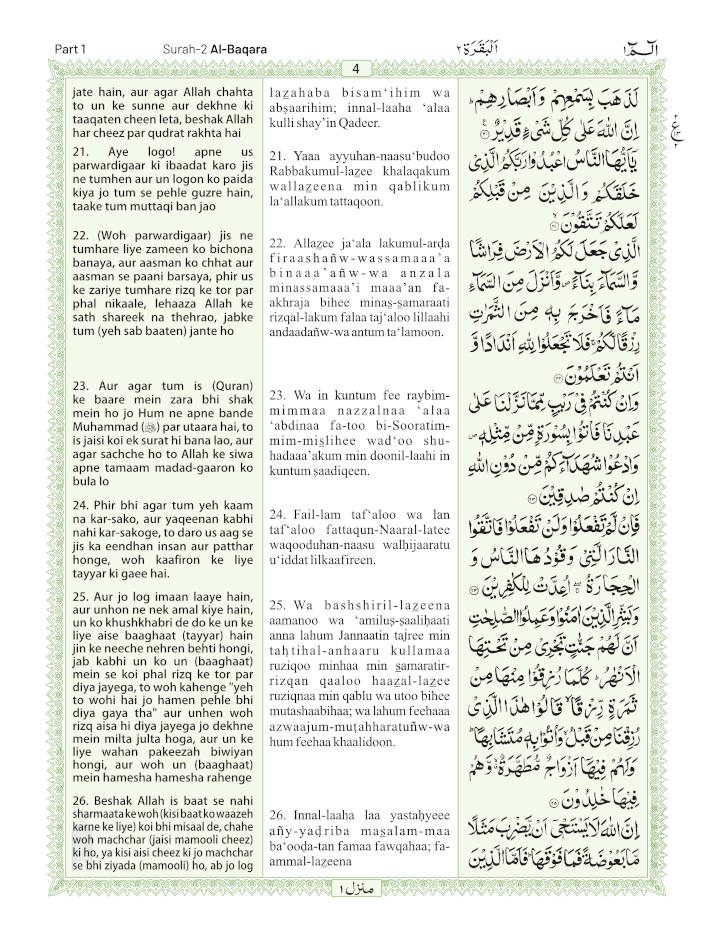 Part 1
Surah-2 Al-Baqara
اَلْبَقَرَة ٢
الٓمّٓ ١
4
jate hain, aur agar Allah chahta
to un ke sunne aur dekhne ki
taaqaten cheen leta, beshak Allah
har cheez par qudrat rakhta hai
21. Aye logo! apne us
parwardigaar ki ibaadat karo jis
ne tumhen aur un logon ko paida
kiya jo tum se pehle guzre hain,
taake tum muttaqi ban jao
22. (Woh parwardigaar) jis ne
tumhare liye zameen ko bichona
banaya, aur aasman ko chhat aur
aasman se paani barsaya, phir us
ke zariye tumhare rizq ke tor par
phal nikaale, lehaaza Allah ke
sath shareek na thehrao, jabke
tum (yeh sab baaten) jante ho
23. Aur agar tum is (Quran)
ke baare mein zara bhi shak
mein ho jo Hum ne apne bande
Muhammad (ﷺ) par utaara hai, to
is jaisi koi ek surat hi bana lao, aur
agar sachche ho to Allah ke siwa
apne tamaam madad-gaaron ko
bula lo
24. Phir bhi agar tum yeh kaam
na kar-sako, aur yaqeenan kabhi
nahi kar-sakoge, to daro us aag se
jis ka eendhan insan aur patthar
honge, woh kaafiron ke liye
tayyar ki gaee hai.
25. Aur jo log imaan laaye hain,
aur unhon ne nek amal kiye hain,
un ko khushkhabri de do ke un ke
liye aise baaghaat (tayyar) hain
jin ke neeche nehren behti hongi,
jab kabhi un ko un (baaghaat)
mein se koi phal rizq ke tor par
diya jayega, to woh kahenge "yeh
to wohi hai jo hamen pehle bhi
diya gaya tha" aur unhen woh
rizq aisa hi diya jayega jo dekhne
mein milta julta hoga, aur un ke
liye wahan pakeezah biwiyan
hongi, aur woh un (baaghaat)
mein hamesha hamesha rahenge
26. Beshak Allah is baat se nahi
sharmaata ke woh (kisi baat ko waazeh
karne ke liye) koi bhi misaal de, chahe
woh machchar (jaisi mamooli cheez)
ki ho, ya kisi aisi cheez ki jo machchar
se bhi ziyada (mamooli) ho, ab jo log
lazahaba bisam‘ihim wa
abṣaarihim; innal-laaha ‘alaa
kulli shay’in Qadeer.
21. Yaaa ayyuhan-naasu‘budoo
Rabbakumul-lazee khalaqakum
wallazeena min qablikum
la‘allakum tattaqoon.
22. Allazee ja‘ala lakumul-arḍa
firaashañw-wassamaaa’a
binaaa’añw-wa anzala
minassamaaa’i maaa’an fa-
akhraja bihee minas-samaraati
rizqal-lakum falaa taj‘aloo lillaahi
andaadañw-wa antum ta‘lamoon.
23. Wa in kuntum fee raybim-
mimmaa nazzalnaa ‘alaa
‘abdinaa fa-too bi-Sooratim-
mim-mislihee wad‘oo shu-
hadaaa’akum min doonil-laahi in
kuntum ṣaadiqeen.
24. Fail-lam taf‘aloo wa lan
taf‘aloo fattaqun-Naaral-latee
waqooduhan-naasu walḥijaaratu
u‘iddat lilkaafireen.
25. Wa bashshiril-lazeena
aamanoo wa ‘amiluṣ-ṣaaliḥaati
anna lahum Jannaatin tajree min
taḥtihal-anhaaru kullamaa
ruziqoo minhaa min samaratir-
rizqan qaaloo haazal-lazee
ruziqnaa min qablu wa utoo bihee
mutashaabihaa; wa lahum feehaaa
azwaajum-muṭahharatuñw-wa
hum feehaa khaalidoon.
26. Innal-laaha laa yastaḥyeee
añy-yaḍriba masalam-maa
ba‘ooḍa-tan famaa fawqahaa; fa-
ammal-lazeena
لَذَهَبَ بِسَمْعِهِمْ وَاَبْصَارِهِمْ ؕ
اِنَّ اللّٰهَ عَلٰى كُلِّ شَیْءٍ قَدِيْرٌ ۟ ۲۰
يٰۤاَيُّهَا النَّاسُ اعْبُدُوْا رَبَّكُمُ الَّذِیْ
خَلَقَكُمْ وَالَّذِيْنَ مِنْ قَبْلِكُمْ
لَعَلَّكُمْ تَتَّقُوْنَ ۲۱
الَّذِیْ جَعَلَ لَكُمُ الْاَرْضَ فِرَاشًا
وَّالسَّمَآءَ بِنَآءً ۪ وَّاَنْزَلَ مِنَ السَّمَآءِ
مَآءً فَاَخْرَجَ بِهٖ مِنَ الثَّمَرٰتِ
رِزْقًا لَّكُمْ ۚ فَلَا تَجْعَلُوْا لِلّٰهِ اَنْدَادًا وَّ
اَنْتُمْ تَعْلَمُوْنَ ۲۲
وَاِنْ كُنْتُمْ فِیْ رَيْبٍ مِّمَّا نَزَّلْنَا عَلٰى
عَبْدِنَا فَاْتُوْا بِسُوْرَةٍ مِّنْ مِّثْلِهٖ ۪
وَادْعُوْا شُهَدَآءَكُمْ مِّنْ دُوْنِ اللّٰهِ
اِنْ كُنْتُمْ صٰدِقِيْنَ ۲۳
فَاِنْ لَّمْ تَفْعَلُوْا وَلَنْ تَفْعَلُوْا فَاتَّقُوا
النَّارَ الَّتِیْ وَقُوْدُهَا النَّاسُ وَ
الْحِجَارَةُ ۖۚ اُعِدَّتْ لِلْكٰفِرِيْنَ ۲۴
وَبَشِّرِ الَّذِيْنَ اٰمَنُوْا وَعَمِلُوا الصّٰلِحٰتِ
اَنَّ لَهُمْ جَنّٰتٍ تَجْرِیْ مِنْ تَحْتِهَا
الْاَنْهٰرُ ؕ كُلَّمَا رُزِقُوْا مِنْهَا مِنْ
ثَمَرَةٍ رِّزْقًا ۙ قَالُوْا هٰذَا الَّذِیْ
رُزِقْنَا مِنْ قَبْلُ ۙ وَاُتُوْا بِهٖ مُتَشَابِهًا ؕ
وَلَهُمْ فِيْهَاۤ اَزْوَاجٌ مُّطَهَّرَةٌ ۙ وَّهُمْ
فِيْهَا خٰلِدُوْنَ ۲۵
اِنَّ اللّٰهَ لَا يَسْتَحْیٖۤ اَنْ يَّضْرِبَ مَثَلًا
مَّا بَعُوْضَةً فَمَا فَوْقَهَا ؕ فَاَمَّا الَّذِيْنَ
منزل ١